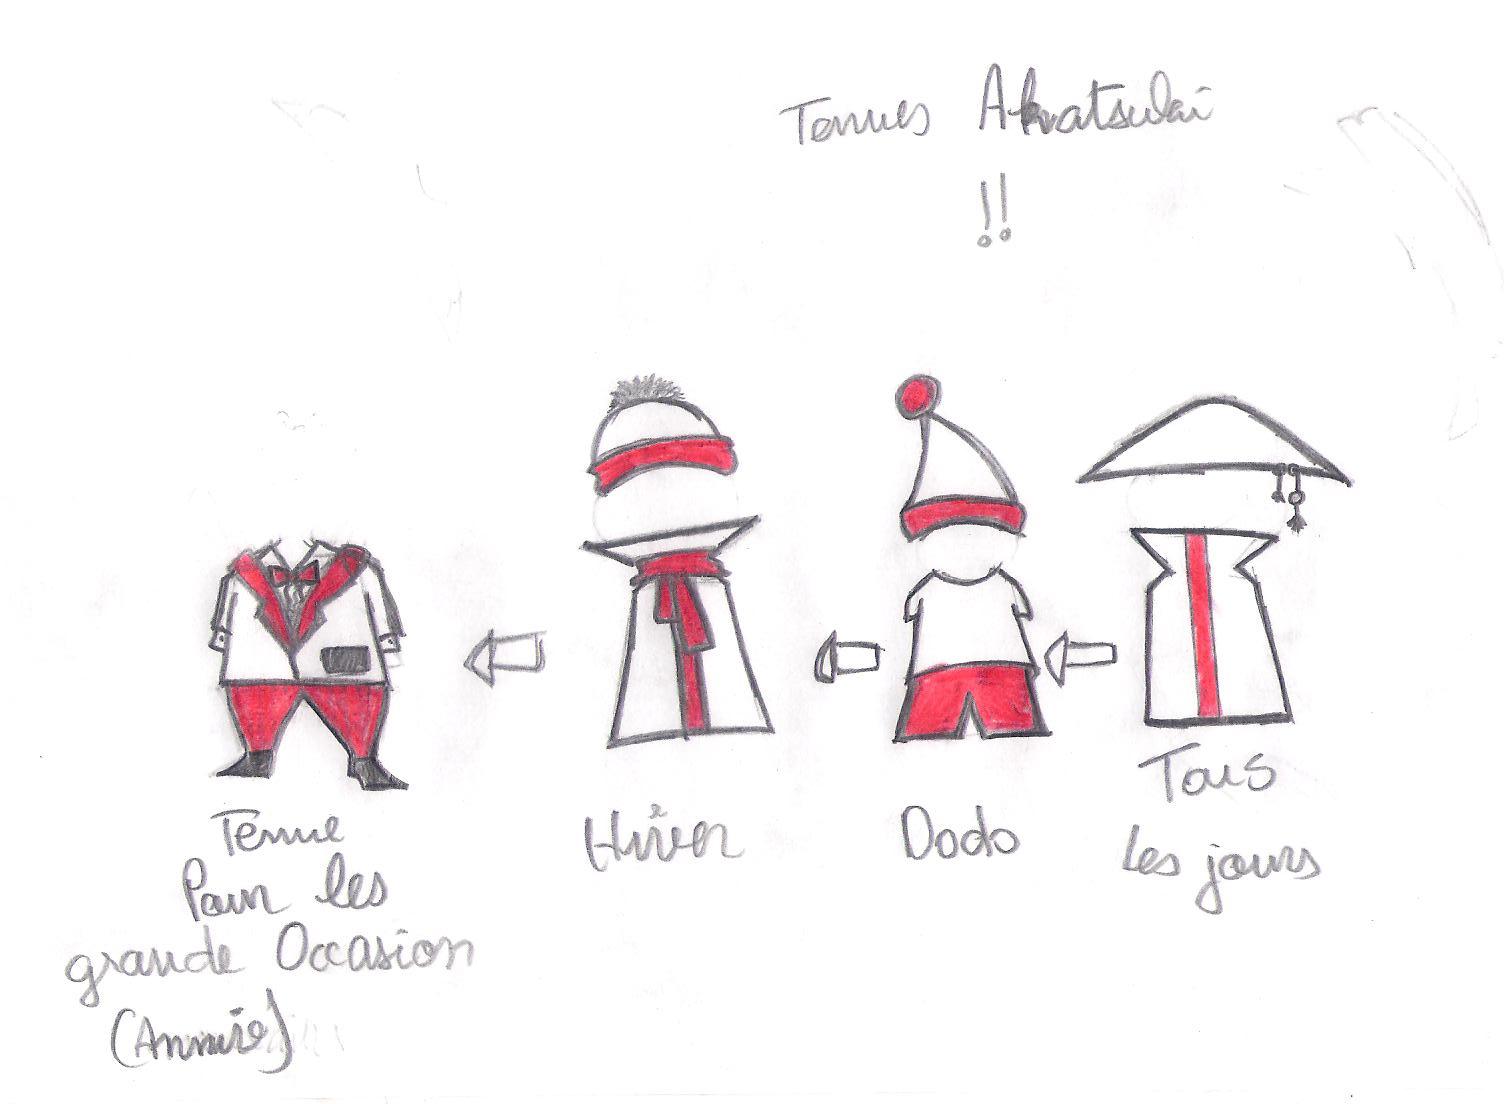 Tenues Akatsukai
!!
Tenue
Pour les
grande Occasion
(Annie)
Hîver
Dodo
Tous
les jours